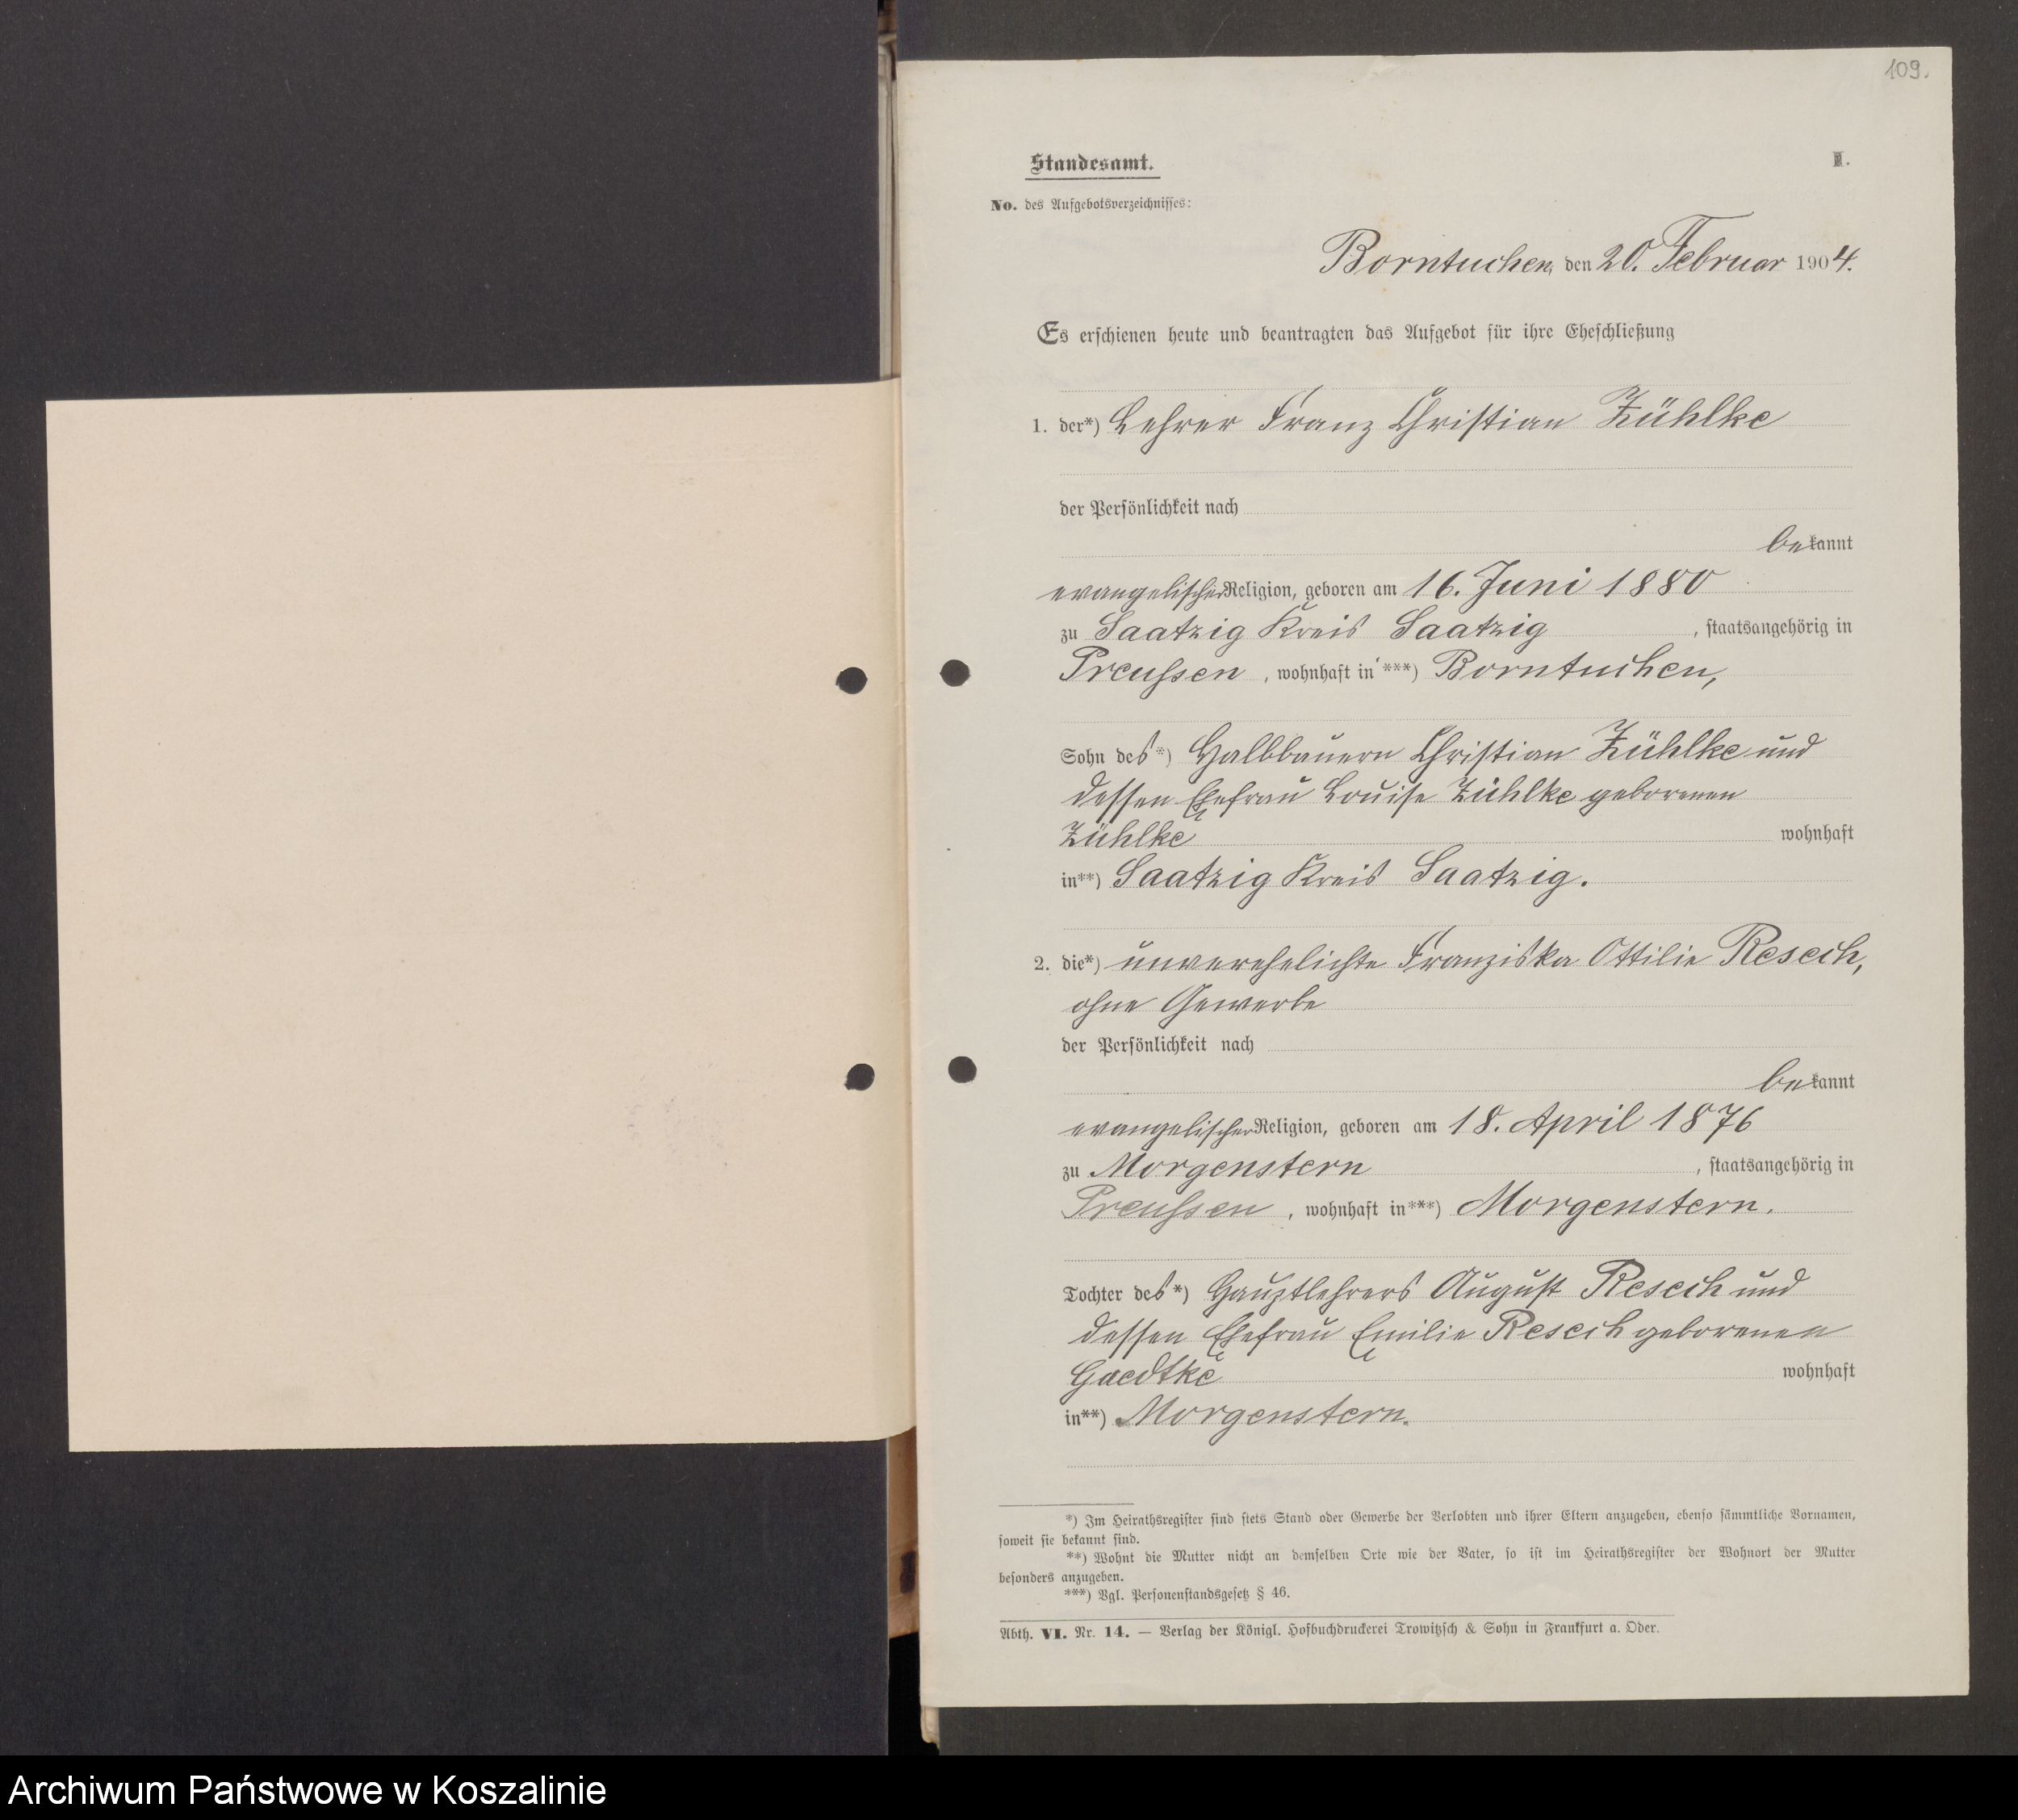 109.
Standesamt.
I.
No. des Aufgebotsverzeichnisses:
Borntuchen, den 20. Februar 1904.
Es erschienen heute und beantragten das Aufgebot für ihre Eheschließung
1. der*) Lehrer Franz Christian Zühlke
der Persönlichkeit nach
bekannt
evangelischer Religion, geboren am 16. Juni 1880
zu Saatzig Kreis Saatzig, staatsangehörig in
Preußen, wohnhaft in ***) Borntuchen,
Sohn des *) Halbbauern Christian Zühlke und
dessen Ehefrau Louise Zühlke geborenen
Zühlke wohnhaft
in**) Saatzig Kreis Saatzig.
2. die*) unverehelichte Franziska Ottilie Resech,
ohne Gewerbe
der Persönlichkeit nach
bekannt
evangelischer Religion, geboren am 18. April 1876
zu Morgenstern, staatsangehörig in
Preußen, wohnhaft in***) Morgenstern.
Tochter des *) Hauptlehrers August Resech und
dessen Ehefrau Emilie Resech geborenen
Gaedtke wohnhaft
in**) Morgenstern.
*) Im Heirathsregister sind stets Stand oder Gewerbe der Verlobten und ihrer Eltern anzugeben, ebenso sämmtliche Vornamen,
soweit sie bekannt sind.
**) Wohnt die Mutter nicht an demselben Orte wie der Vater, so ist im Heirathsregister der Wohnort der Mutter
besonders anzugeben.
***) Vgl. Personenstandsgesetz § 46.
Abth. VI. Nr. 14. — Verlag der Königl. Hofbuchdruckerei Trowitzsch & Sohn in Frankfurt a. Oder.
Archiwum Państwowe w Koszalinie